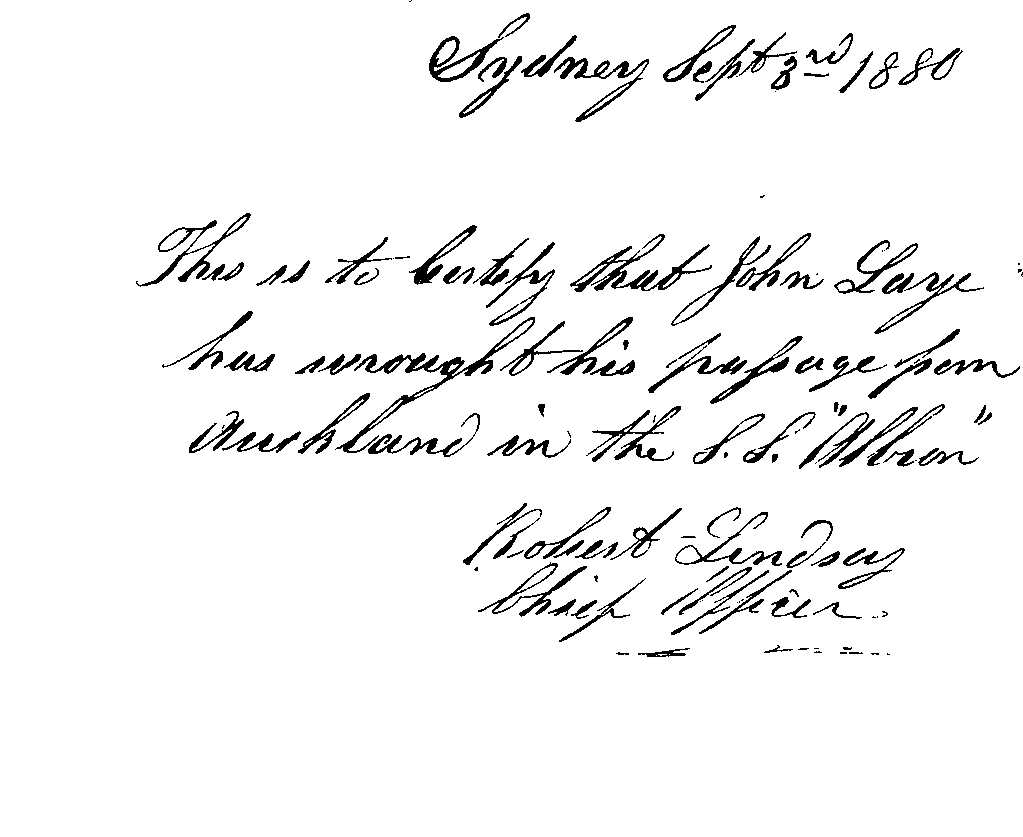 Sydney Sept 3rd 1880
This is to Certify that John Laye
has wrought his passage from
Auckland in the S.S. "Albion"
Robert Lindsay
Chief Officer.